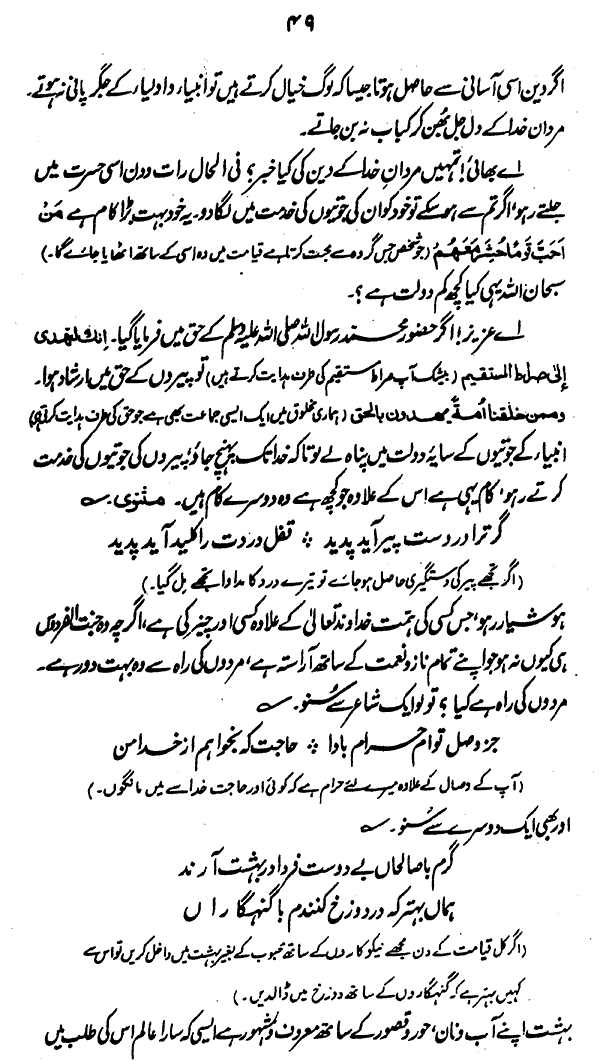 ۴۹
اگر دین اسی آسانی سے حاصل ہوتا جیسا کہ لوگ خیال کرتے ہیں تو انبیاء و اولیاء کے جگر پانی نہ ہوتے۔
مردان خدا کے دل جل بھن کر کباب نہ بن جاتے۔
اے بھائی! تمہیں مردانِ خدا کے دین کی کیا خبر؟ فی الحال رات و دن اسی حسرت میں
جلتے رہو، اگر تم سے ہو سکے تو خود کو ان کی جوتیوں کی خدمت میں لگا دو۔ یہ خود بہت بڑا کام ہے مَنْ
اَحَبَّ قَوْمًا حُشِرَ مَعَهُمْ (جو شخص جس گروہ سے محبت کرتا ہے قیامت میں وہ اسی کے ساتھ اٹھایا جائے گا۔)
سبحان اللہ یہی کیا کچھ کم دولت ہے؟۔
اے عزیز! اگر حضور محمد رسول اللہ صلی اللہ علیہ وسلم کے حق میں فرمایا گیا۔ انک لتھدی
الی صراط المستقیم (بیشک آپ صراط مستقیم کی طرف ہدایت کرتے ہیں) تو پیروں کے حق میں ارشاد ہوا۔
وممن خلقنا اُمةٌ یھدون بالحق (ہماری مخلوق میں ایک ایسی جماعت بھی ہے جو حق کی طرف ہدایت کرتی ہے)
انبیاء کے جوتیوں کے سایۂ دولت میں پناہ لے لو تا کہ خدا تک پہنچ جاؤ، پیروں کی جوتیوں کی خدمت
کرتے رہو، کام یہی ہے اس کے علاوہ جو کچھ ہے وہ دوسرے کام ہیں۔ مثنوی۔ ؎
گر ترا در دست پیر آید پدید ؞ قفل دردت را کلید آید پدید
(اگر تجھے پیر کی دستگیری حاصل ہو جائے تو تیرے درد کا مداوا تجھے مل گیا۔)
ہوشیار رہو، جس کسی کی ہمت خداوند تعالیٰ کے علاوہ کسی اور چیز کی ہے، اگرچہ وہ جنت الفردوس
ہی کیوں نہ ہو جو اپنے تمام ناز و نعمت کے ساتھ آراستہ ہے، مردوں کی راہ سے وہ بہت دور ہے۔
مردوں کی راہ ہے کیا؟ تو لو ایک شاعر سے سُنو۔ ؎
جز وصل توام حرام بادا ؞ حاجت کہ بخواہم از خدا من
(آپ کے وصال کے علاوہ میرے لئے حرام ہے کہ کوئی اور حاجت خدا سے میں مانگوں۔)
اور بھی ایک دوسرے سے سُنو۔ ؎
گرم با صالحاں بے دوست فردا در بہشت آرند
ہماں بہتر کہ در دوزخ کنندم با گنہگاراں
(اگر کل قیامت کے دن مجھے نیکوکاروں کے ساتھ محبوب کے بغیر بہشت میں داخل کریں تو اس سے
کہیں بہتر ہے کہ گنہگاروں کے ساتھ دوزخ میں ڈالدیں۔)
بہشت اپنے آب و نان، حور و قصور کے ساتھ معروف و مشہور ہے ایسی کہ سارا عالم اس کی طلب میں